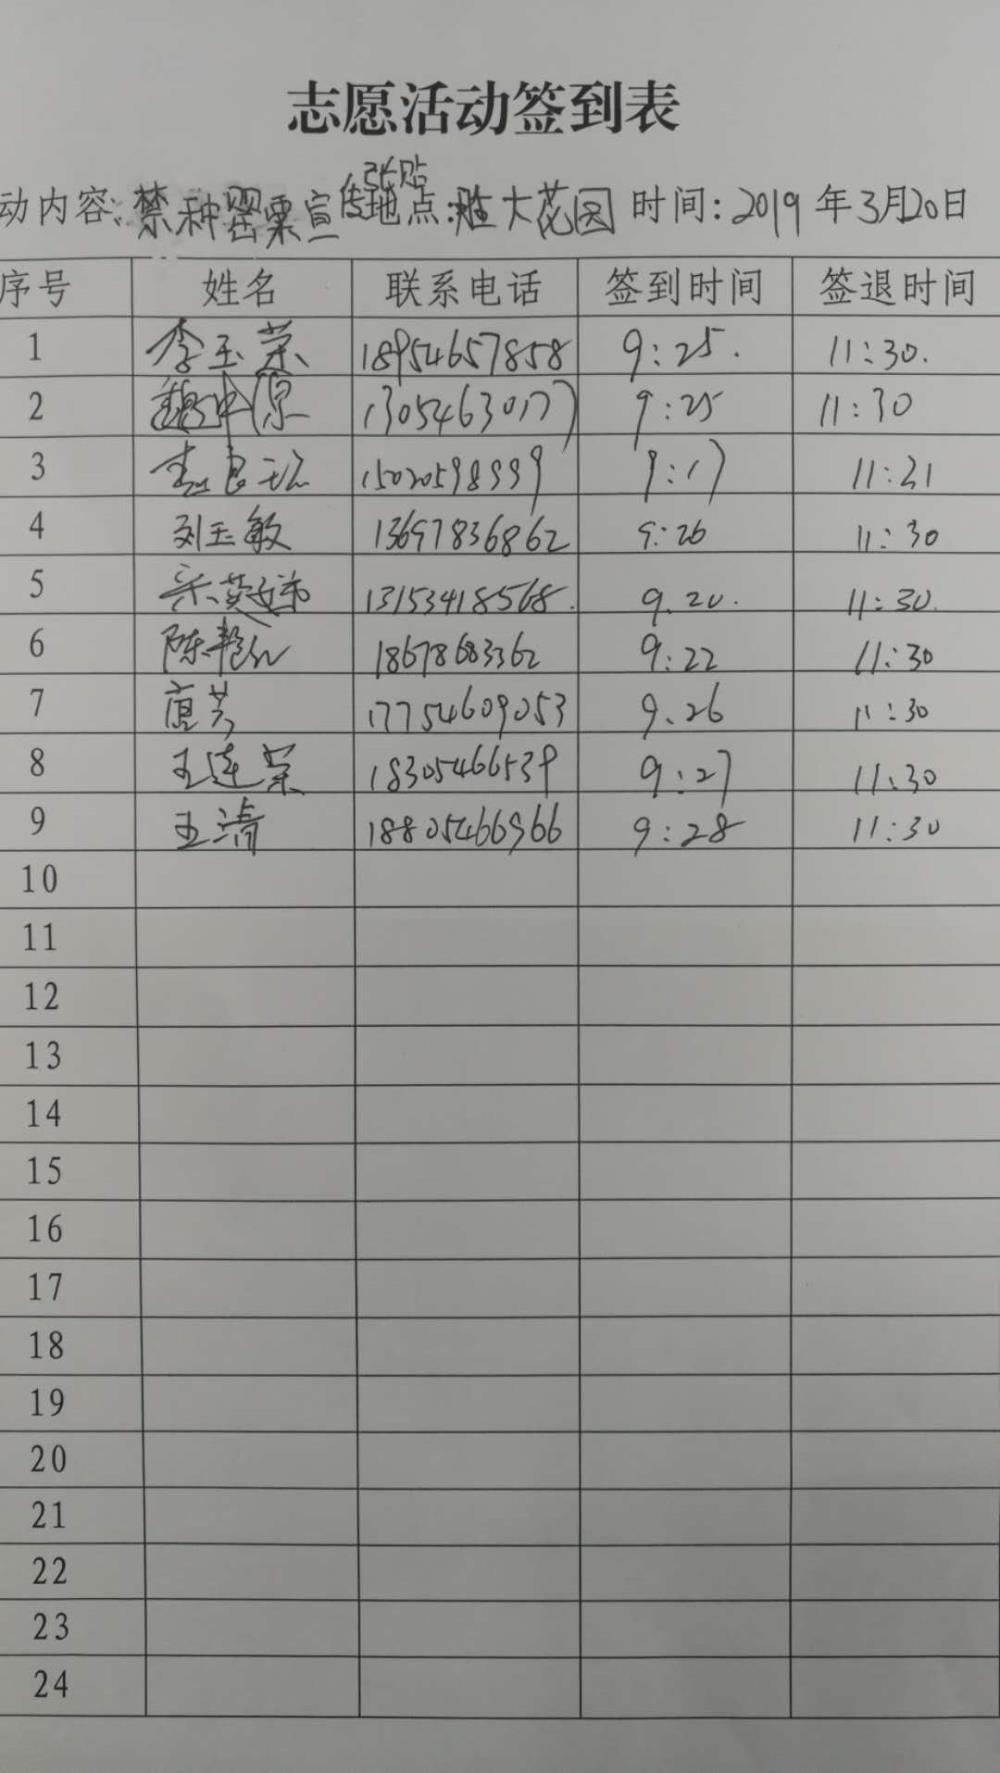 志愿活动签到表
张贴
动内容:禁种罂粟宣传地点:胜大花园 时间:2019年3月20日
序号 姓名 联系电话 签到时间 签退时间
1 李玉荣 18954657858 9:25. 11:30.
2 魏中原 13054630177 9:25 11:30
3 15020598999 9:17 11:21
4 刘玉敏 13697836862 9:26 11:30
5 宋英娣 13153418568. 9.20. 11:30.
6 陈艳红 18678683362 9:22 11:30
7 唐芳 17754609053 9.26 11:30
8 王连荣 18305466539 9:27 11:30
9 王清 18805466966 9:28 11:30
10
11
12
13
14
15
16
17
18
19
20
21
22
23
24